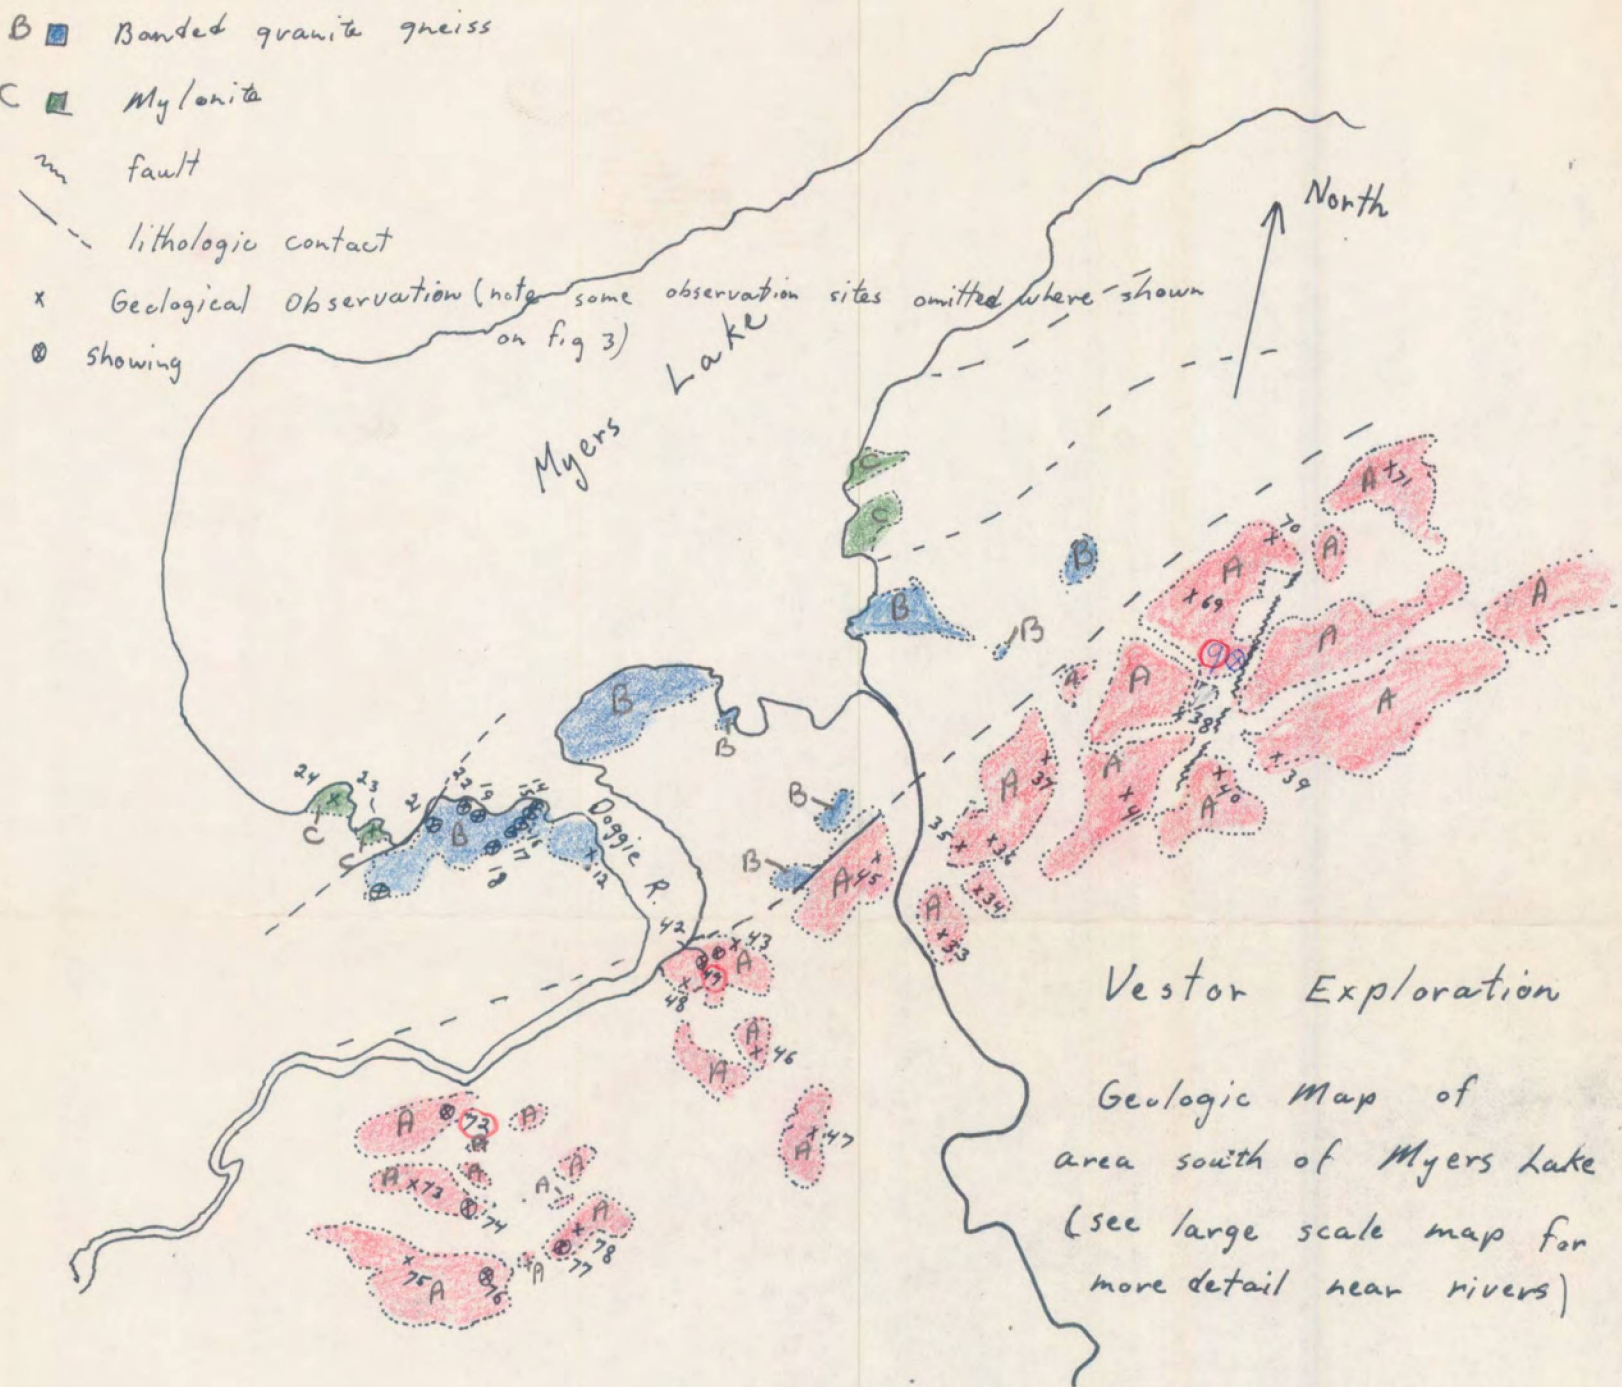 B Banded granite gneiss
C Mylonite
fault
lithologic contact
x Geological Observation (note some observation sites omitted where shown
on fig 3)
showing
North
Myers Lake
C
C
B
B
B
A 71
70
A
A
A
69
A
9
A
A
A
38
A
39
A
40
A
41
A
37
35
36
34
A
33
B
B
B
B
A 45
24
23
C
C
B
19
16
17
18
12
Doggie R.
42
43
A
49
48
A
46
A
A 47
A
72
A
A
A
A
A 73
74
A
A
78
77
A
75
A
76
Vestor Exploration
Geologic Map of
area south of Myers Lake
(see large scale map for
more detail near rivers)